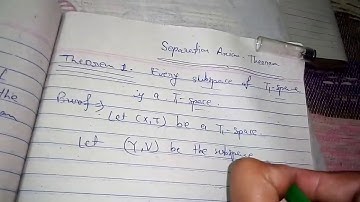 Separation Axiom Theorem
Theorem 1. Every subspace of T₁-space
is a T₁-space.
Proof → Let (X,T) be a T₁-space
Let (Y,V) be the subspace
the